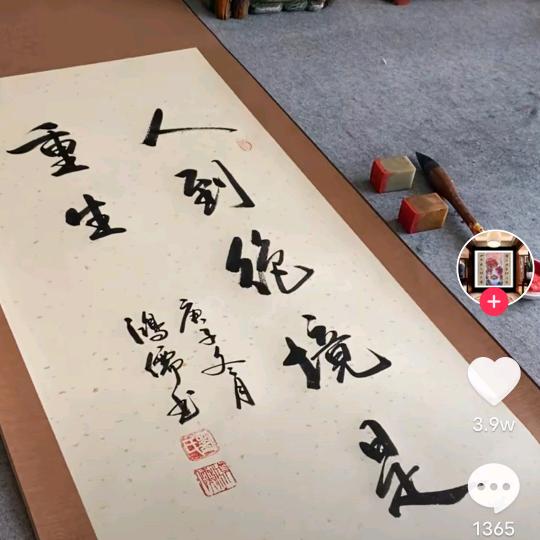 人到绝境是
重生
庚子冬月
鸿儒书
3.9w
1365